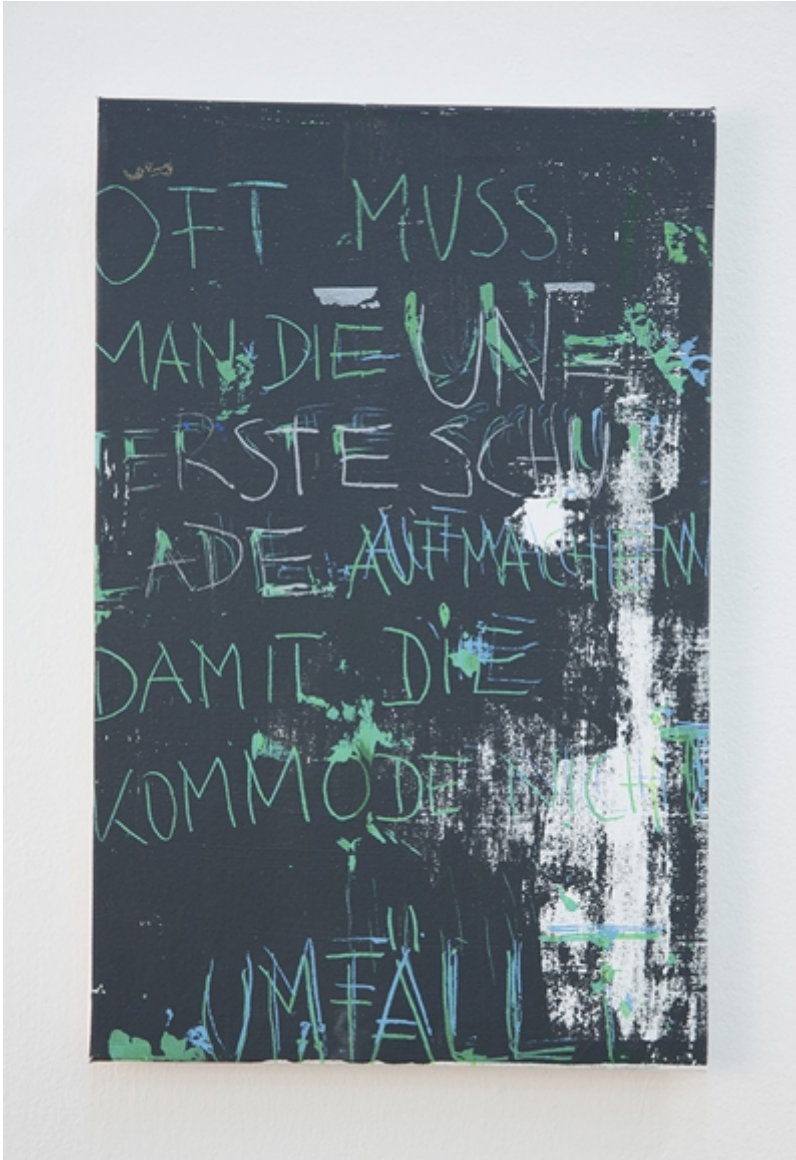 OFT MUSS
MAN DIE UN=
TERSTE SCHUB
LADE AUFMACHEN
DAMIT DIE
KOMMODE NICHT
UMFÄLLT